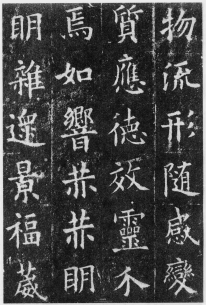 物流形随感變
質應德效靈不
焉如響㳟㳟明
明雜遝景福葳